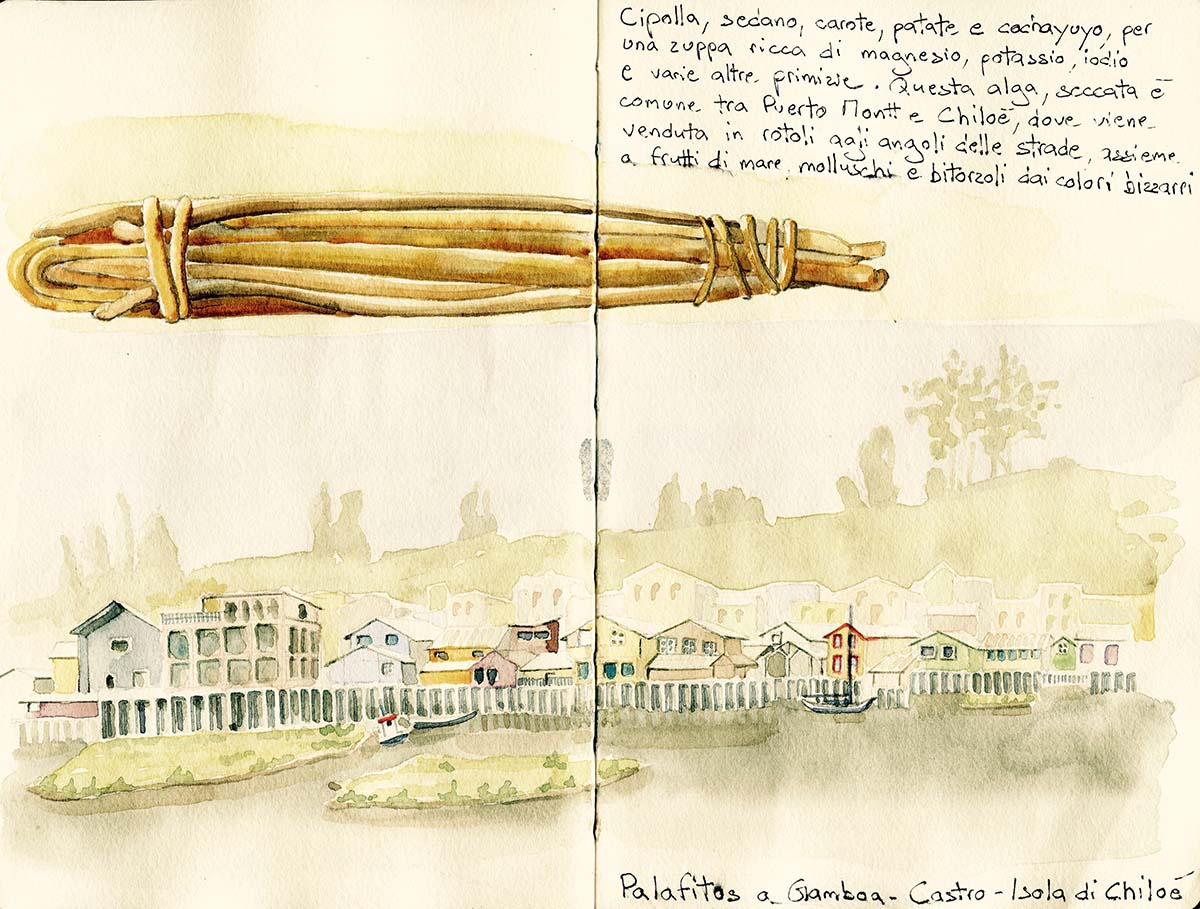 Cipolla, sedano, carote, patate e cochayuyo, per
una zuppa ricca di magnesio, potassio, iodio
e varie altre primizie. Questa alga, seccata è
comune tra Puerto Montt e Chiloé, dove viene
venduta in rotoli agli angoli delle strade, assieme
a frutti di mare, molluschi e bitorzoli dai colori bizzarri
Palafitos a Gamboa - Castro - Isola di Chiloé